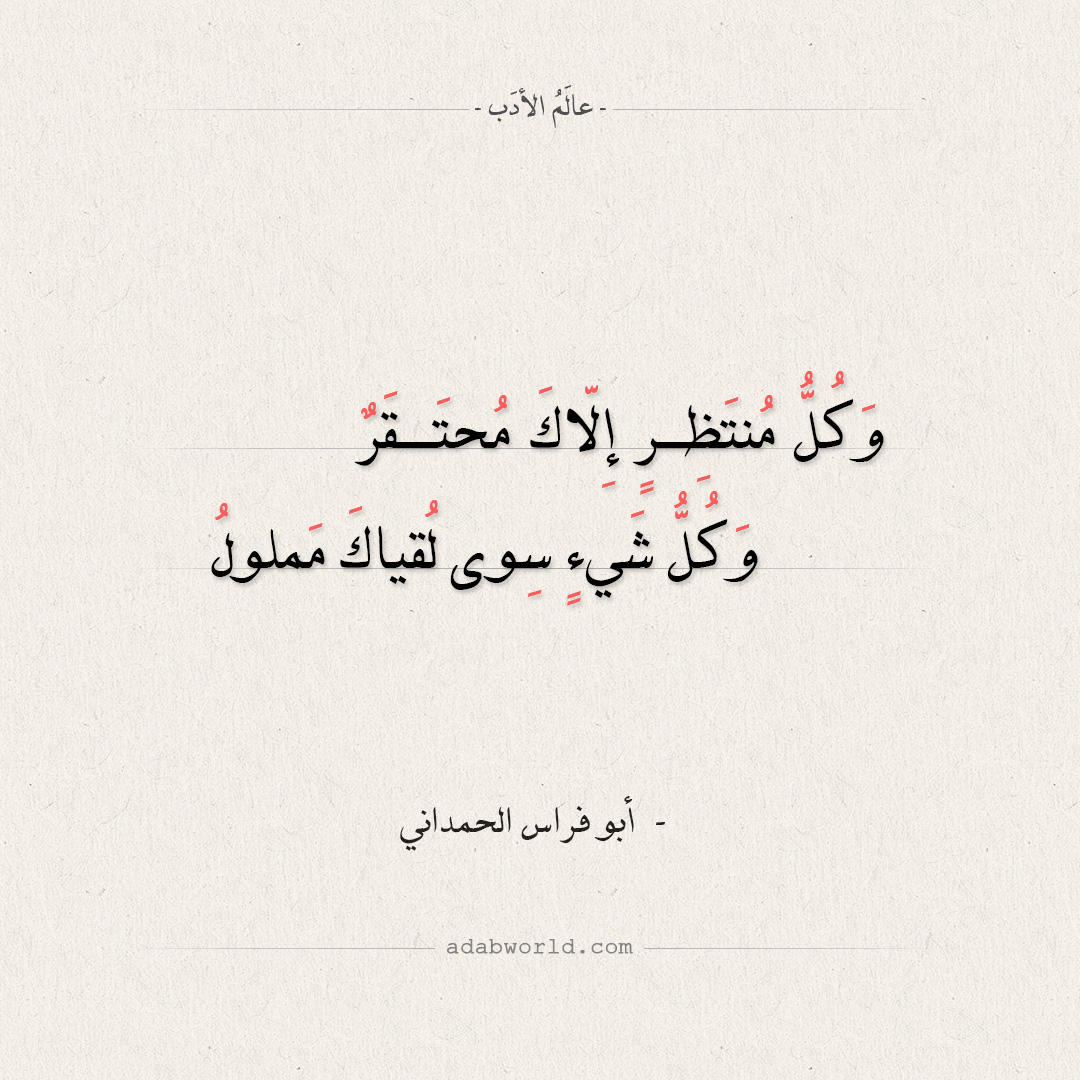 - عالَمُ الأدَب -
وَكُلُّ مُنتَظَـــرٍ إِلّاكَ مُحتَـــقَرٌ
وَكُلُّ شَيءٍ سِوى لُقياكَ مَملولُ
- أبو فراس الحمداني
adabworld.com